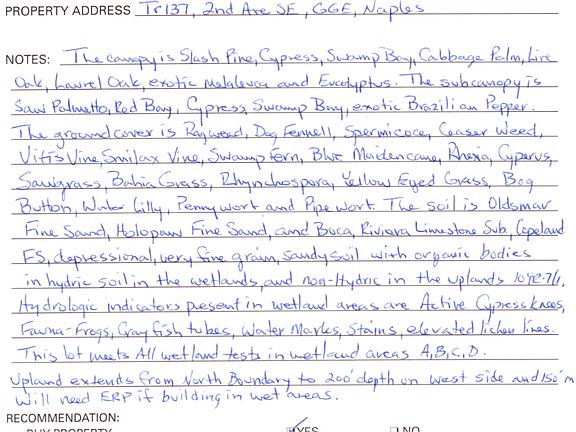 PROPERTY ADDRESS Tr 137, 2nd Ave SE, GGE, Naples
NOTES: The canopy is Slash Pine, Cypress, Swamp Bay, Cabbage Palm, Live
Oak, Laurel Oak, exotic Melaleuca and Eucalyptus. The subcanopy is
Saw Palmetto, Red Bay, Cypress, Swamp Bay, exotic Brazilian Pepper.
The groundcover is Ragweed, Dog Fennell, Spermicoce, Ceaser Weed,
Vitis Vine, Smilax Vine, Swamp Fern, Blue Maidencane, Rhexia, Cyperus,
Sawgrass, Bahia Grass, Rhynchospora, Yellow Eyed Grass, Bog
Button, Water Lilly, Pennywort and Pipewort. The soil is Oldsmar
Fine Sand, Holopaw Fine Sand, and Boca, Riviera Limestone Sub, Copeland
FS, depressional, very fine grain, sandy soil with organic bodies
in hydric soil in the wetlands, and non-Hydric in the uplands 10YR-7/1,
Hydrologic indicators present in wetland areas are Active Cypress knees,
Fauna-Frogs, Crayfish tubes, Water Marks, Stains, elevated lichen lines.
This lot meets All wetland tests in wetland areas A,B,C,D.
Upland extends from North Boundary to 200' depth on west side and 150'
Will need ERP if building in wet areas.
RECOMMENDATION:
BUY PROPERTY YES NO